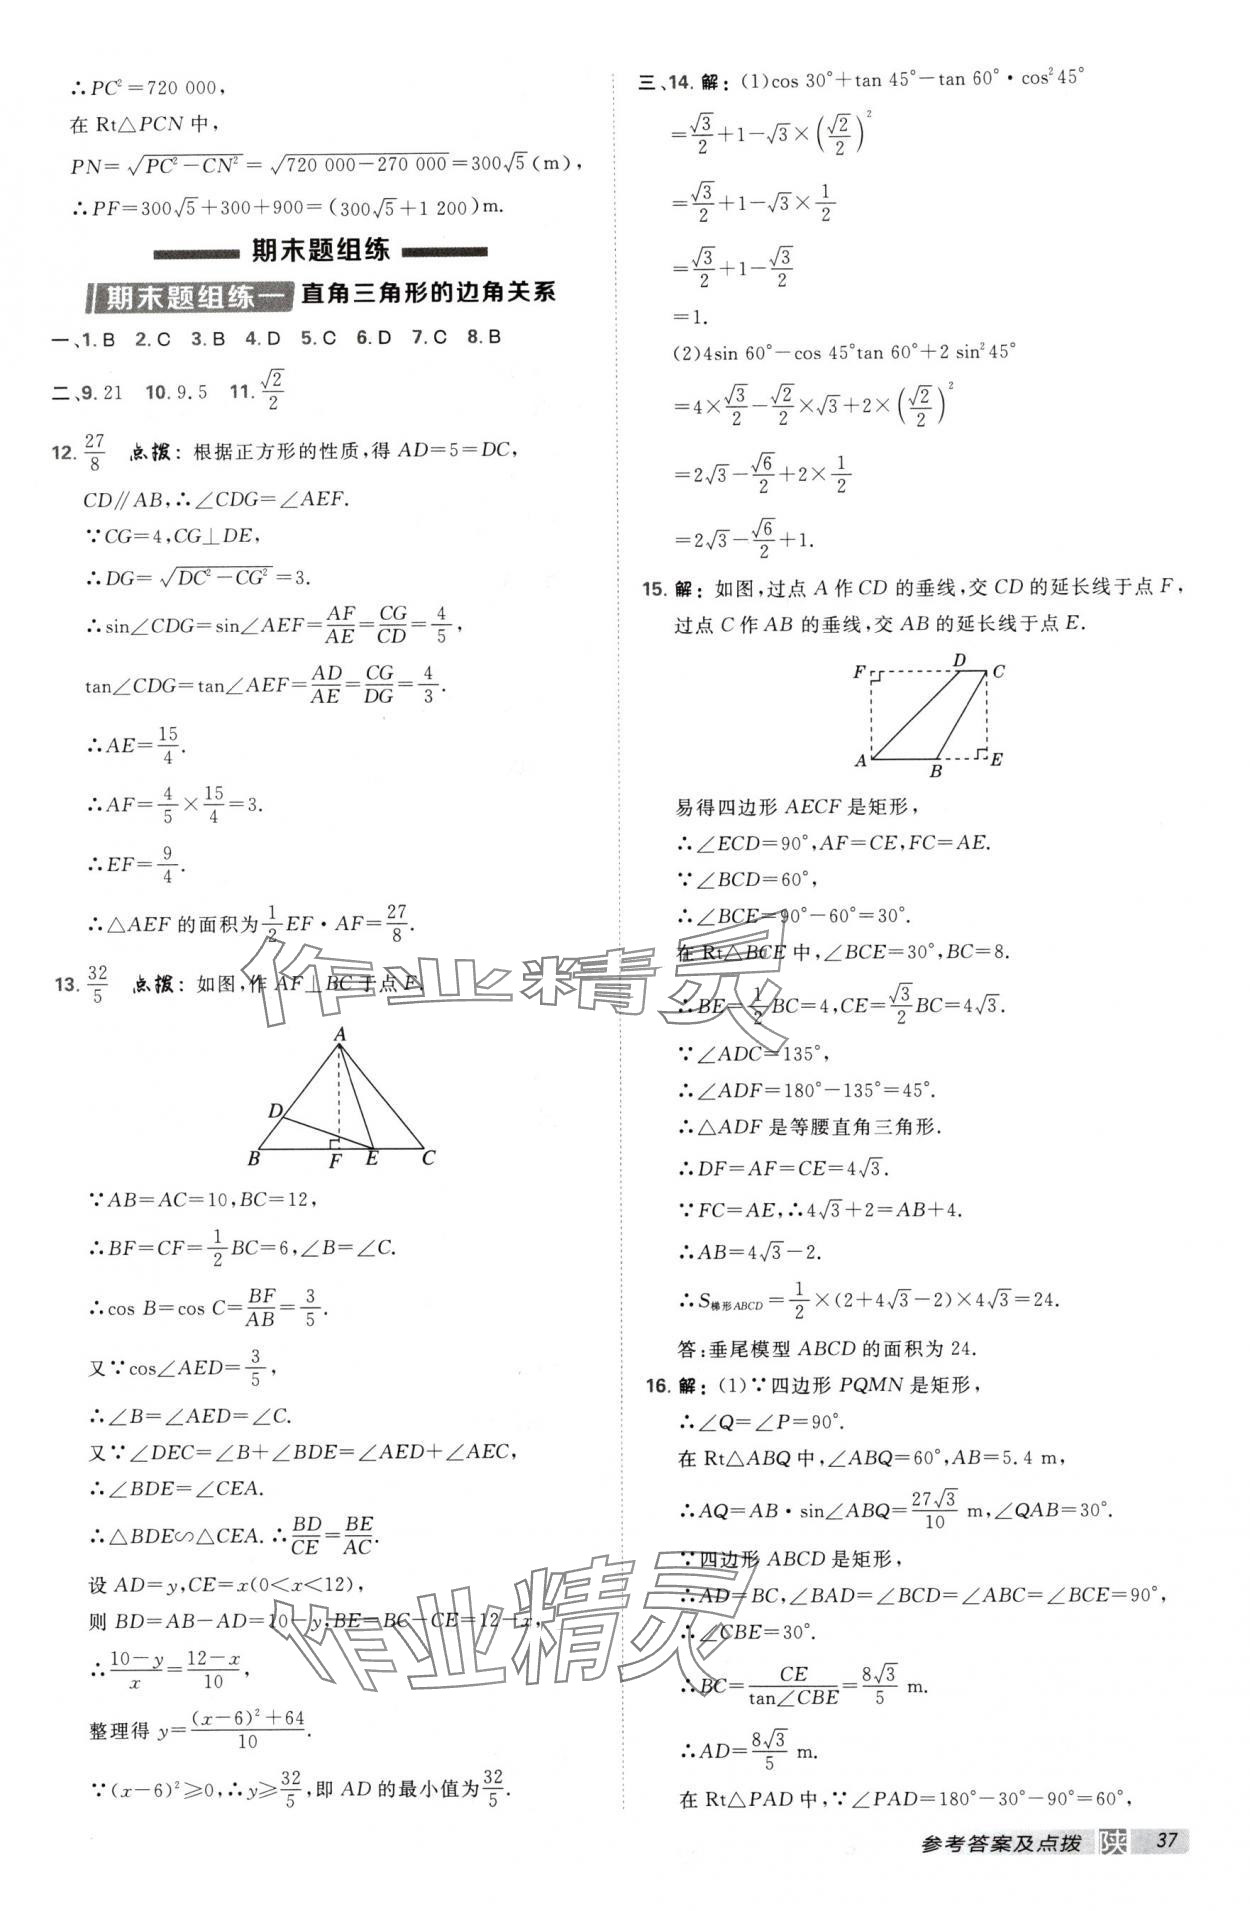 ∴PC²=720 000,
在 Rt△PCN 中,
PN=√(PC²−CN²)=√(720 000−270 000)=300√5(m),
∴PF=300√5+300+900=(300√5+1 200)m.
期末题组练
期末题组练一 直角三角形的边角关系
一、1. B 2. C 3. B 4. D 5. C 6. D 7. C 8. B
二、9. 21 10. 9.5 11. √2/2
12. 27/8 点拨：根据正方形的性质,得 AD=5=DC,
CD∥AB,∴∠CDG=∠AEF.
∵CG=4,CG⊥DE,
∴DG=√(DC²−CG²)=3.
∴sin∠CDG=sin∠AEF=AF/AE=CG/CD=4/5,
tan∠CDG=tan∠AEF=AD/AE=CG/DG=4/3.
∴AE=15/4.
∴AF=4/5×15/4=3.
∴EF=9/4.
∴△AEF 的面积为1/2EF·AF=27/8.
13. 32/5 点拨：如图,作 AF⊥BC 于点 F.
A
D
B F E C
∵AB=AC=10,BC=12,
∴BF=CF=1/2BC=6,∠B=∠C.
∴cos B=cos C=BF/AB=3/5.
又∵cos∠AED=3/5,
∴∠B=∠AED=∠C.
又∵∠DEC=∠B+∠BDE=∠AED+∠AEC,
∴∠BDE=∠CEA.
∴△BDE∽△CEA.∴BD/CE=BE/AC.
设 AD=y,CE=x(0<x<12),
则 BD=AB−AD=10−y,BE=BC−CE=12−x,
∴(10−y)/x=(12−x)/10,
整理得 y=((x−6)²+64)/10.
∵(x−6)²≥0,∴y≥32/5,即 AD 的最小值为32/5.
三、14. 解：(1)cos 30°+tan 45°−tan 60°·cos²45°
=√3/2+1−√3×(√2/2)²
=√3/2+1−√3×1/2
=√3/2+1−√3/2
=1.
(2)4sin 60°−cos 45°tan 60°+2 sin²45°
=4×√3/2−√2/2×√3+2×(√2/2)²
=2√3−√6/2+2×1/2
=2√3−√6/2+1.
15. 解：如图,过点 A 作 CD 的垂线,交 CD 的延长线于点 F,
过点 C 作 AB 的垂线,交 AB 的延长线于点 E.
F D C
A B E
易得四边形 AECF 是矩形,
∴∠ECD=90°,AF=CE,FC=AE.
∵∠BCD=60°,
∴∠BCE=90°−60°=30°.
在 Rt△BCE 中,∠BCE=30°,BC=8.
∴BE=1/2BC=4,CE=√3/2BC=4√3.
∵∠ADC=135°,
∴∠ADF=180°−135°=45°.
∴△ADF 是等腰直角三角形.
∴DF=AF=CE=4√3.
∵FC=AE,∴4√3+2=AB+4.
∴AB=4√3−2.
∴S梯形ABCD=1/2×(2+4√3−2)×4√3=24.
答:垂尾模型 ABCD 的面积为 24.
16. 解：(1)∵四边形 PQMN 是矩形,
∴∠Q=∠P=90°.
在 Rt△ABQ 中,∠ABQ=60°,AB=5.4 m,
∴AQ=AB·sin∠ABQ=27√3/10 m,∠QAB=30°.
∵四边形 ABCD 是矩形,
∴AD=BC,∠BAD=∠BCD=∠ABC=∠BCE=90°,
∴∠CBE=30°.
∴BC=CE/tan∠CBE=8√3/5 m.
∴AD=8√3/5 m.
在 Rt△PAD 中,∵∠PAD=180°−30°−90°=60°,
作业精灵
作业精灵
参考答案及点拨 陕 37